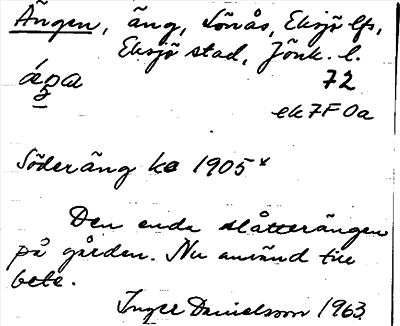 Ängen, äng, Sörås, Eksjö lfs,
Eksjö stad, Jönk. l.
72
ek7F0a
Söderäng ka 1905
Den enda slåtterängen
på gården. Nu använd till
bete.
Inger Danielsson 1963